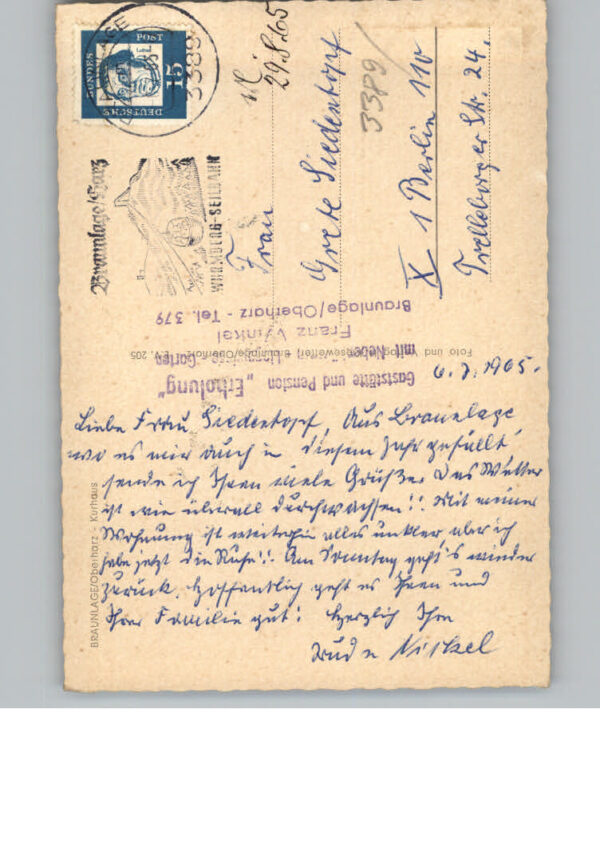 BRAUNLAGE
3389
15
DEUTSCHE
BUNDES
POST
Braunlage/Harz
WURMBERG-SEILBAHN
29.8.65
3389/
Frau
Grete Siedentopf
X 1 Berlin 110
Trelleborger Str. 24.
Gaststätte und Pension „Erholung"
mit Neben
Franz Winkel
Braunlage/Oberharz - Tel. 379
Foto und Verlag
205
BRAUNLAGE/Oberharz - Kurhaus
6. 7. 1965.
Liebe Frau Siedentopf, Aus Braunlage,
wo es mir auch in diesem Jahr gefällt
sende ich Ihnen viele Grüße. Das Wetter
ist wie überall durchwachsen!! Mit meiner
Wohnung ist weiterhin alles unklar, aber ich
habe jetzt die Ruhe!! Am Sonntag geht's wieder
zurück. Hoffentlich geht es Ihnen und
Ihrer Familie gut! Herzlich Ihre
Nickel